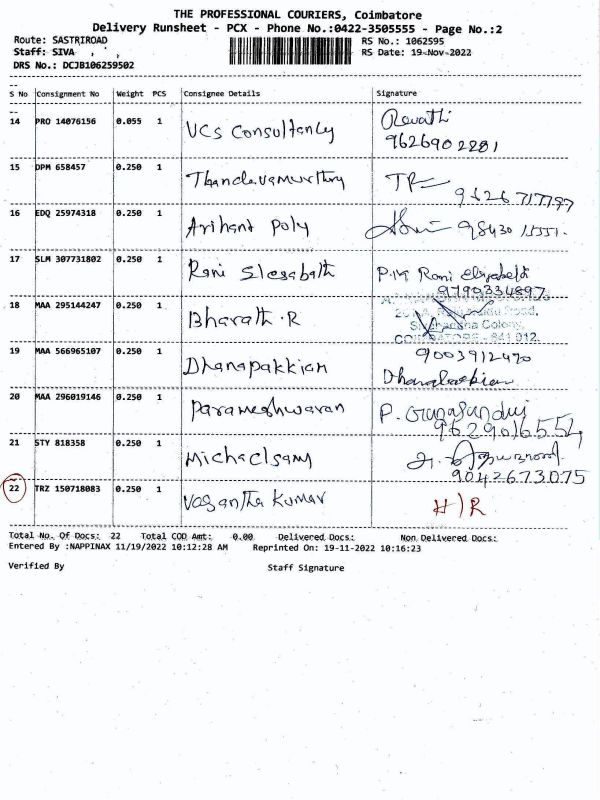 THE PROFESSIONAL COURIERS, Coimbatore
Delivery Runsheet - PCX - Phone No.:0422-3505555 - Page No.:2
Route: SASTRIROAD RS No.: 1062595
Staff: SIVA , ' , RS Date: 19-Nov-2022
DRS No.: DCJB106259502
S No Consignment No Weight PCS Consignee Details Signature
14 PRO 14076156 0.055 1 VCS Consultancy Revathi
9626902281
15 DPM 658457 0.250 1 Thandavamurthy
9626717797
16 EDQ 25974318 0.250 1 Arihant Poly 98430
17 SLM 307731802 0.250 1 Rani Slesabath P.M Rani Elizabeth
9790334897
18 MAA 295144247 0.250 1 Bharath.R Road,
Colony,
COIMBATORE - 641 012.
19 MAA 566965107 0.250 1 Dhanapakkiam 9003912470
20 MAA 296019146 0.250 1 Parameshwaran P.
9629016554
21 STY 818358 0.250 1 Michaelsamy
9042673075
22 TRZ 150718083 0.250 1 Vasantha Kumar H/R
Total No. Of Docs: 22 Total COD Amt: 0.00 Delivered Docs: Non Delivered Docs:
Entered By :NAPPINAX 11/19/2022 10:12:28 AM Reprinted On: 19-11-2022 10:16:23
Verified By Staff Signature